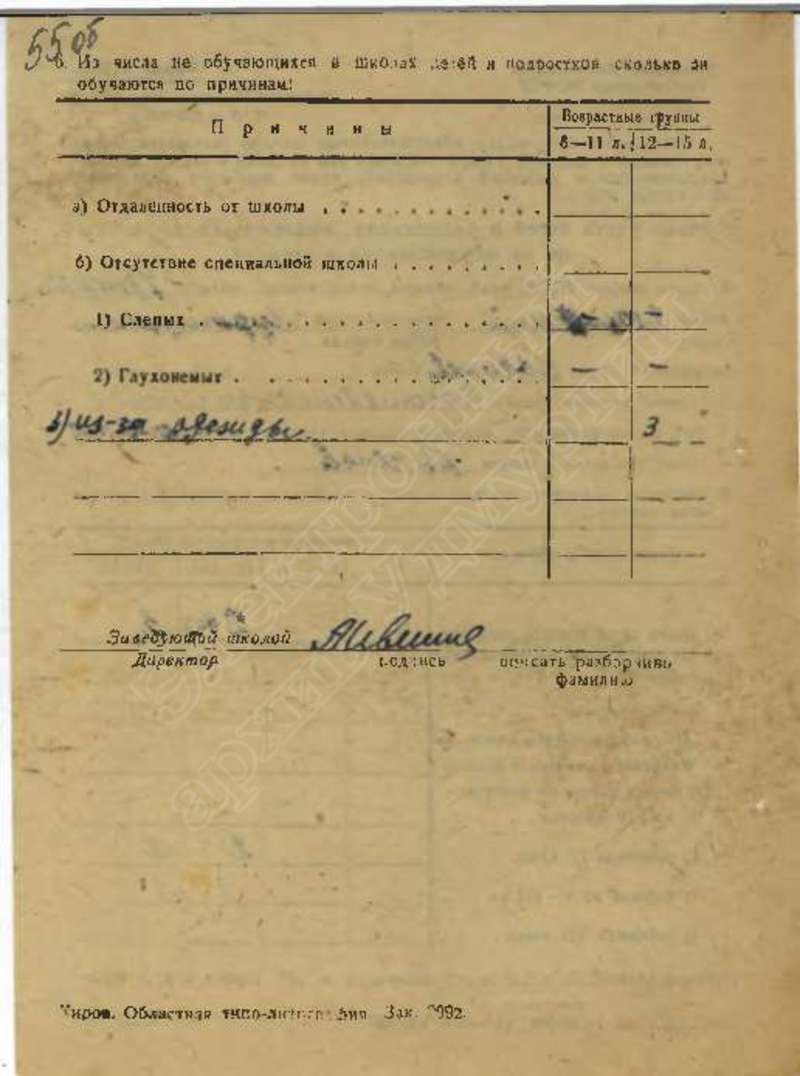 55 об
6. Из числа не обучающихся в школах детей и подростков сколько не
обучаются по причинам:
Причины
Возрастные группы
8—11 л. 12—15 л.
а) Отдаленность от школы
б) Отсутствие специальной школы
1) Слепых —
2) Глухонемых — —
из-за одежды 3
Заведующий школой
Директор подпись писать разборчиво
фамилию
Киров. Областная типо-литография Зак.
электронный
архив Удмуртии